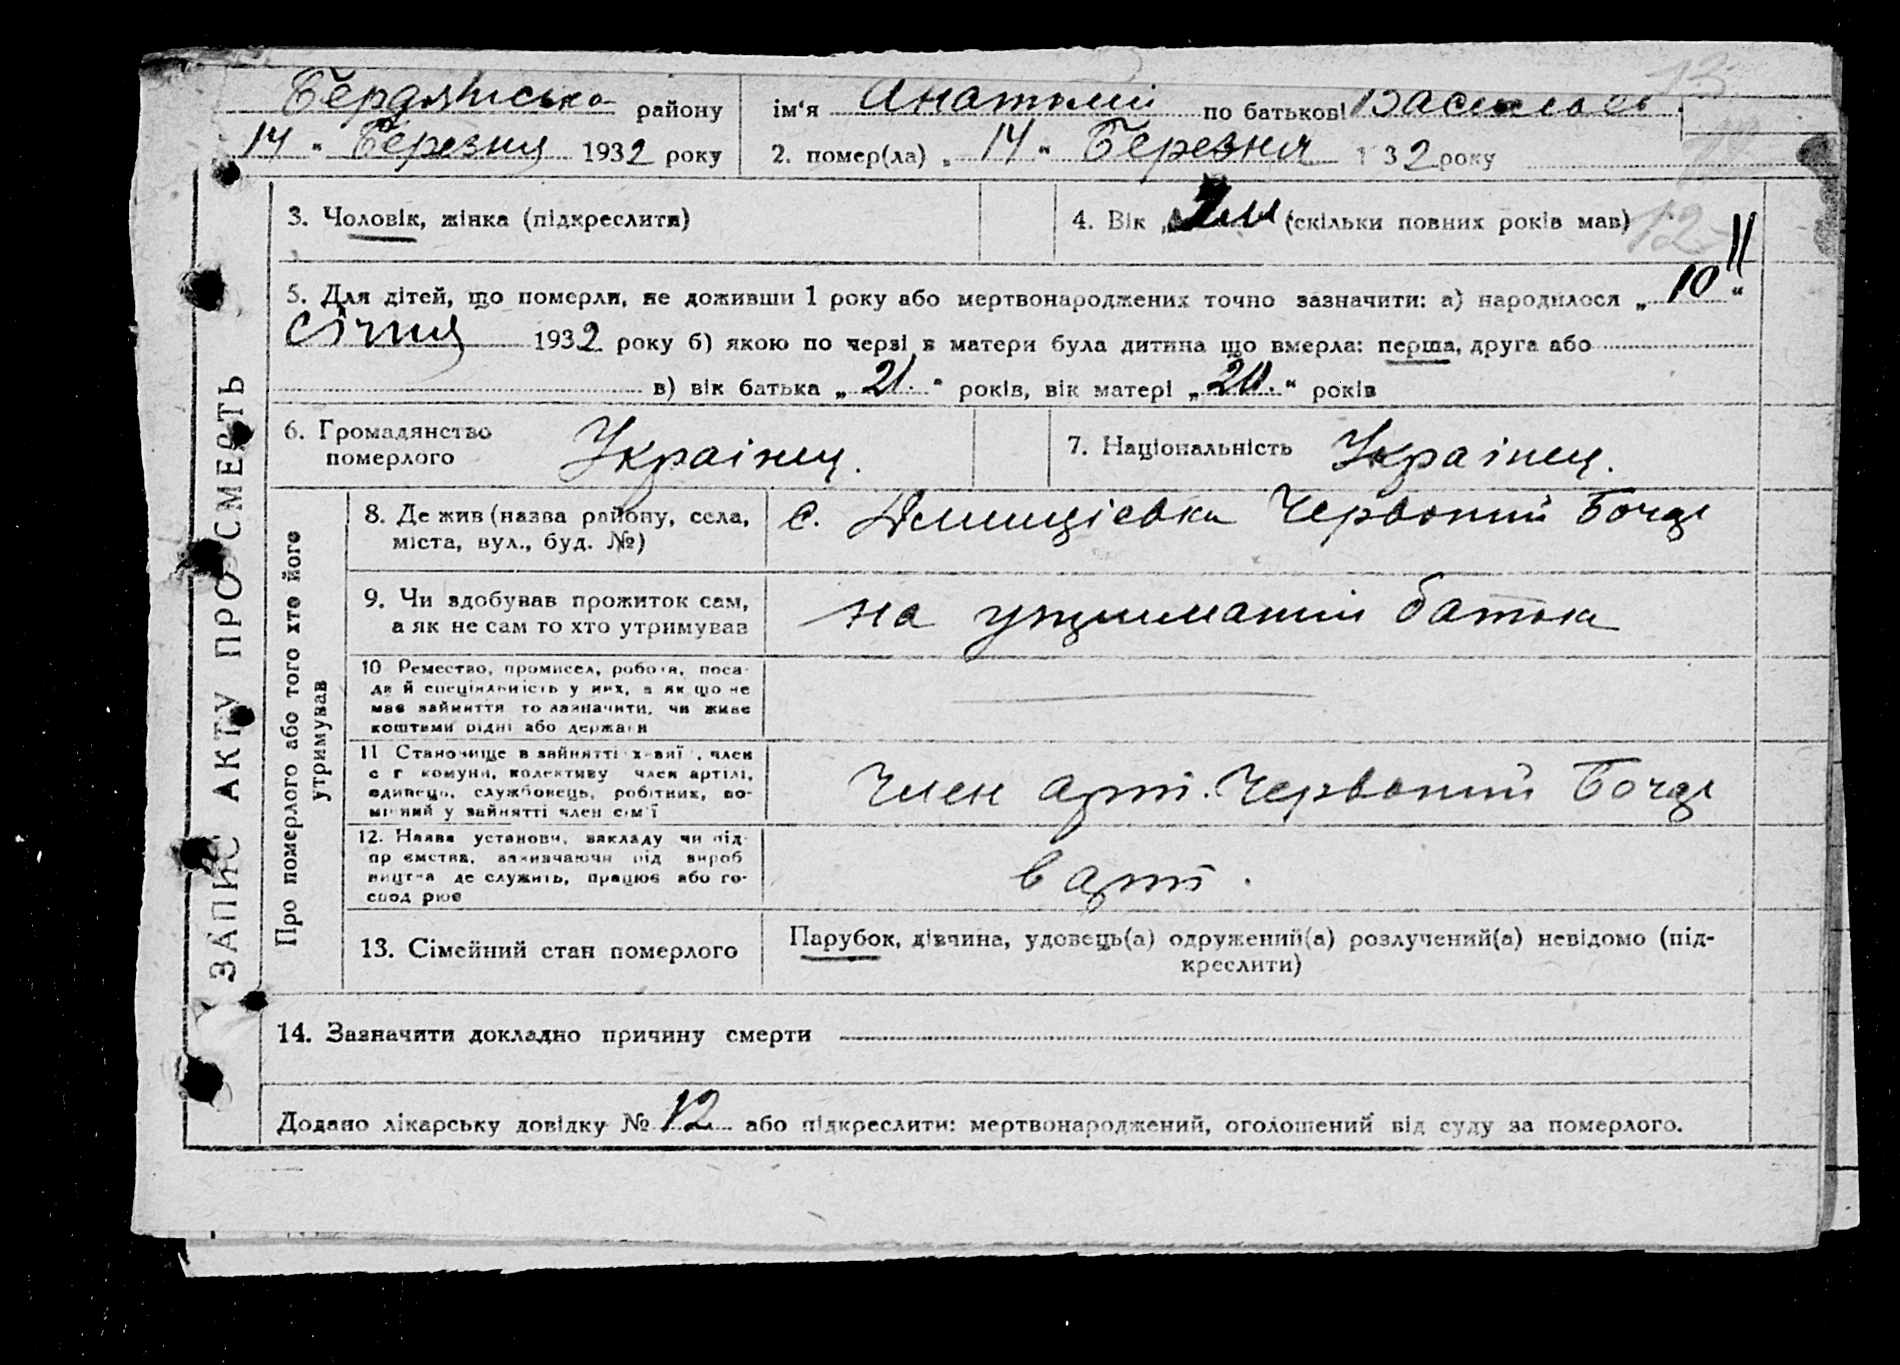 Бердянсько району ім'я Анатолий по батькові Васильев
14 " Березня 1932 року 2. помер(ла) „ 14 " Березня 1932 року
3. Чоловік, жінка (підкреслити) 4. Вік (скільки повних років мав) 12
5. Для дітей, що померли, не доживши 1 року або мертвонароджених точно зазначити: а) народилося „ 10 "
січня 1932 року б) якою по черзі в матери була дитина що вмерла: перша, друга або
в) вік батька „ 21. " років, вік матері „ 20. " років
6. Громадянство померлого Українец. 7. Національність Українец.
8. Де жив (назва району, села, с. Червоний Боєць
міста, вул., буд. №)
9. Чи здобував прожиток сам, на утриманні батька
а як не сам то хто утримував
10 Ремество, промисел, робота, поса-
да й спеціяльність у них, а як що не
має зайняття то зазначити, чи живе
коштами рідні або держави
11 Становище в зайнятті хазяї, член
с г комуни, колективу член артілі,
одинець, службовець, робітник, по-
мічний у зайнятті член сім'ї
Член арті. Червоний Боєць
12. Назва установи, закладу чи під-
приємства, зазначаючи рід вироб
ництва де служить, працює або го-
спод рює
в арті.
13. Сімейний стан померлого Парубок, дівчина, удовець(а) одружений(а) розлучений(а) невідомо (під-
креслити)
14. Зазначити докладно причину смерти
Додано лікарську довідку № 12 або підкреслити: мертвонароджений, оголошений від суду за померлого.
ЗАПИС АКТУ ПРО СМЕРТЬ
Про померлого або того хто його
утримував